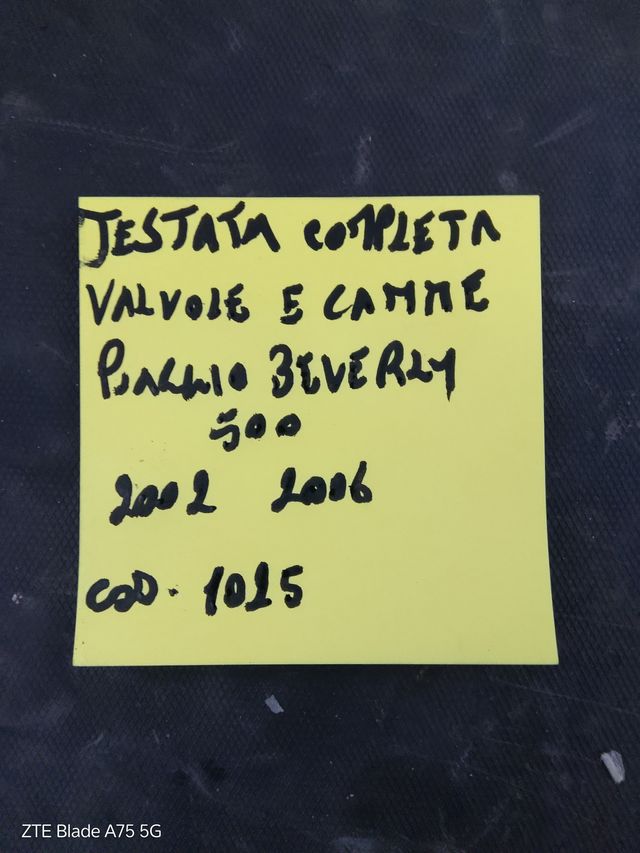 TESTATA COMPLETA
VALVOLE E CAMME
PIAGGIO BEVERLY
500
2002 2006
COD. 1015
ZTE Blade A75 5G